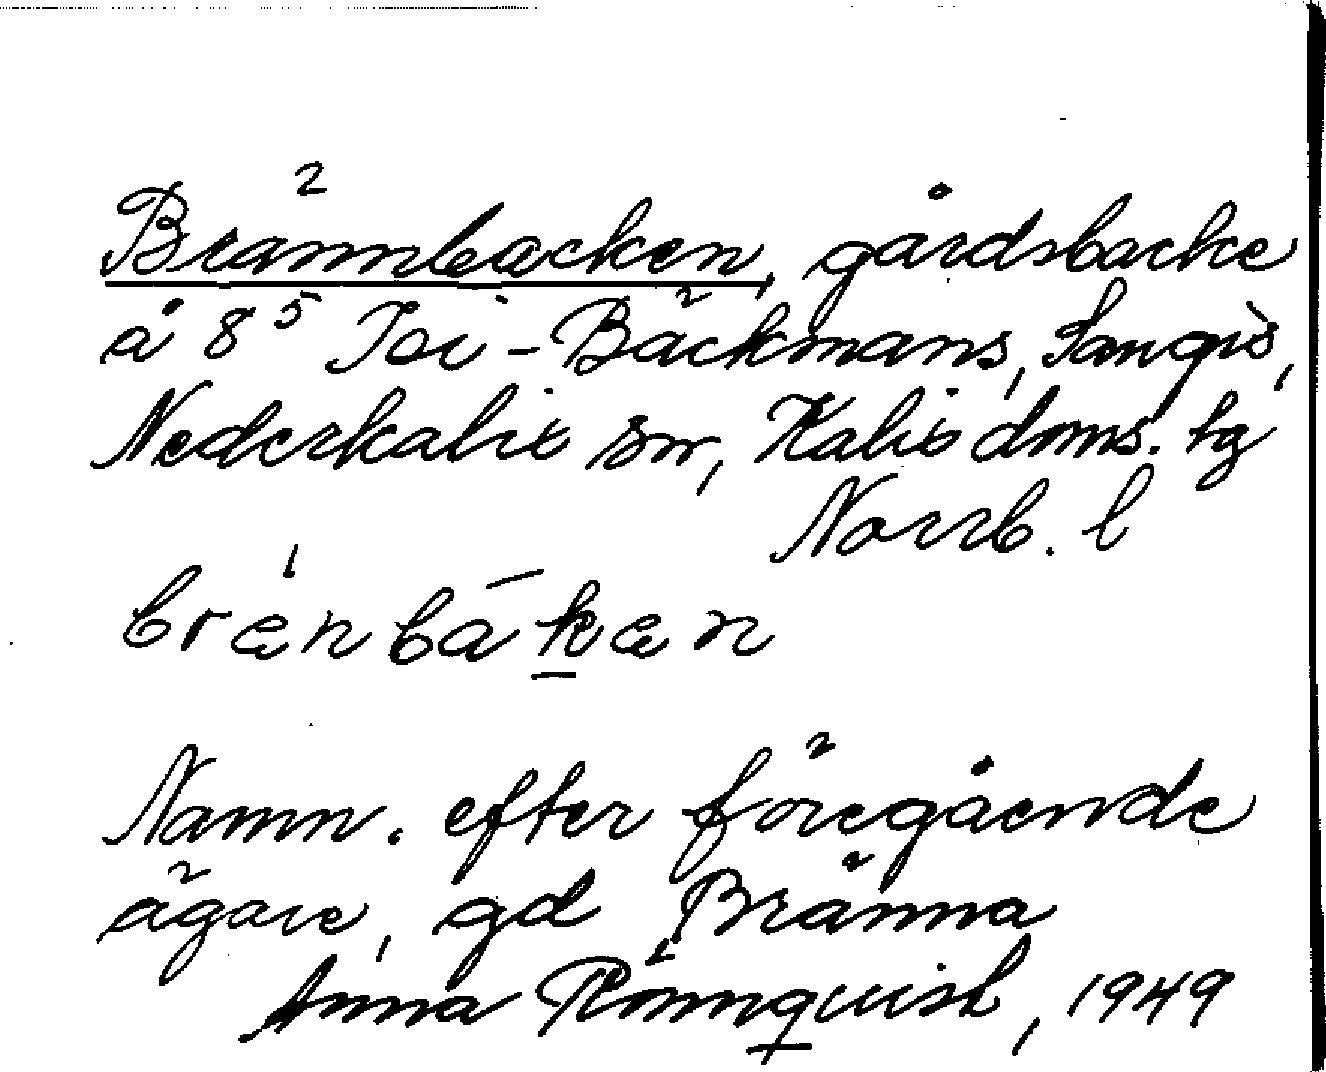 Brännbacken, gårdsbacke
å 8⁵ Joi-Bäckmans, Sangis,
Nederkalix sn, Kalix doms. tg
Norrb. l
brænbakæn
Namn. efter föregående
ägare, gd Bränna
Anna Rönnquist, 1949